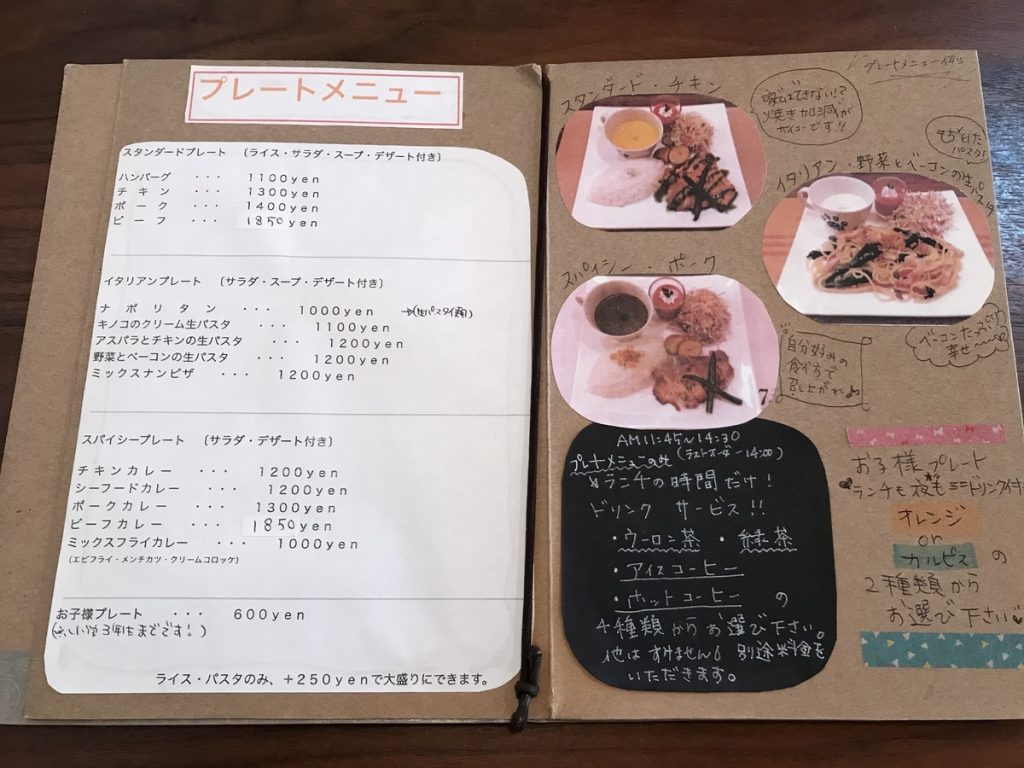 プレートメニュー
スタンダードプレート 〔ライス・サラダ・スープ・デザート付き〕
ハンバーグ ・・・ 1100yen
チキン ・・・ 1300yen
ポーク ・・・ 1400yen
ビーフ ・・・ 1850yen
イタリアンプレート 〔サラダ・スープ・デザート付き〕
ナポリタン ・・・ 1000yen
キノコのクリーム生パスタ ・・・ 1100yen
アスパラとチキンの生パスタ ・・・ 1200yen
野菜とベーコンの生パスタ ・・・ 1200yen
ミックスナンピザ ・・・ 1200yen
スパイシープレート 〔サラダ・デザート付き〕
チキンカレー ・・・ 1200yen
シーフードカレー ・・・ 1200yen
ポークカレー ・・・ 1300yen
ビーフカレー ・・・ 1850yen
ミックスフライカレー ・・・ 1000yen
(エビフライ・メンチカツ・クリームコロッケ)
お子様プレート ・・・ 600yen
3年生までです!)
ライス・パスタのみ、+250yenで大盛りにできます。
プレートメニュー例
スタンダード・チキン
家ではできない!?
焼き加減が
サイコーです!!
もちもちした
パスタ!
イタリアン・野菜とベーコンの生パスタ
スパイシー・ポーク
ベーコンたっぷり
幸せ
自分好みの
食べ方で
召し上がれ♪
AM11:45~14:30
プレートメニューのみ (ラストオーダー14:00)
ランチの時間だけ!
ドリンク サービス!!
・ウーロン茶 ・緑茶
・アイスコーヒー
・ホットコーヒー の
4種類からお選び下さい。
他はすみません! 別途料金を
いただきます。
お子様プレート
ランチも夜もミニドリンク付
オレンジ
or
カルピス の
2種類から
お選び下さい